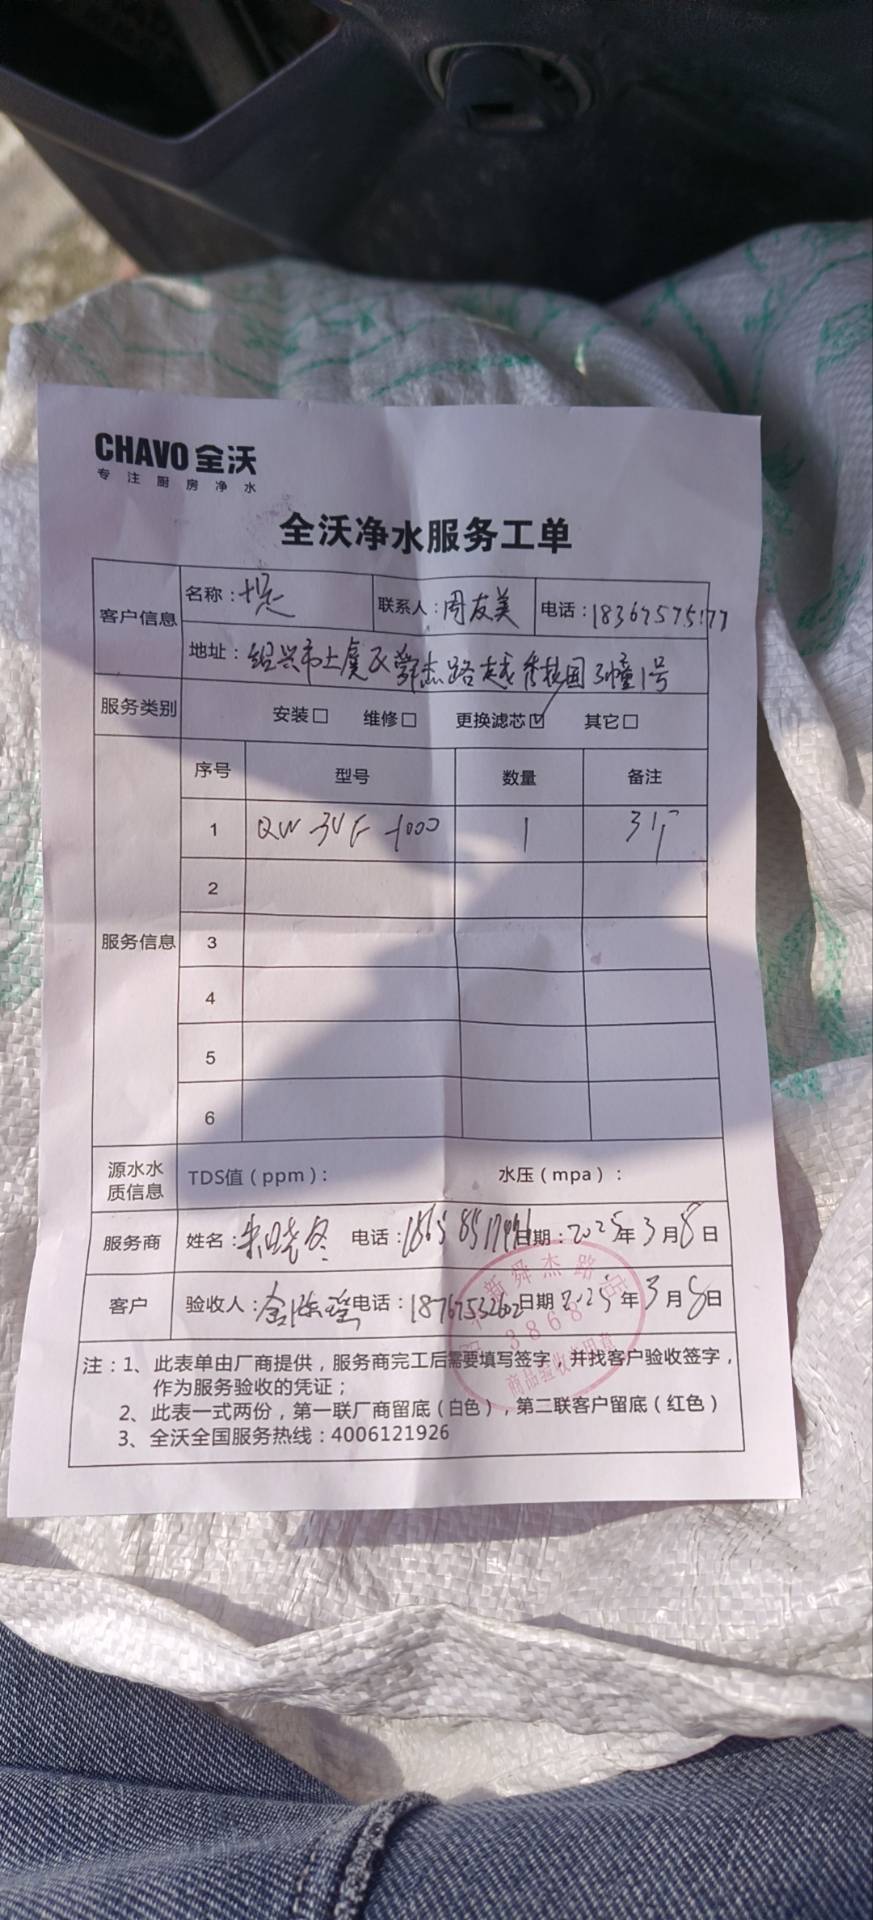 CHAVO 全沃
专注厨房净水
全沃净水服务工单
客户信息 名称： 联系人：周友美 电话：
地址：绍兴市上虞区舜杰路越秀校园3幢1号
服务类别 安装□ 维修□ 更换滤芯☑ 其它□
序号 型号 数量 备注
1 QW 1 3个
2
服务信息 3
4
5
6
源水水质信息 TDS值（ppm）： 水压（mpa）：
服务商 姓名：朱晓冬 电话： 日期：2025年3月8日
客户 验收人： 电话：18767532602 日期 2025年3月8日
新舜杰路店
3868
商品验收专用章
注：1、此表单由厂商提供，服务商完工后需要填写签字，并找客户验收签字，
作为服务验收的凭证；
2、此表一式两份，第一联厂商留底（白色），第二联客户留底（红色）
3、全沃全国服务热线：4006121926